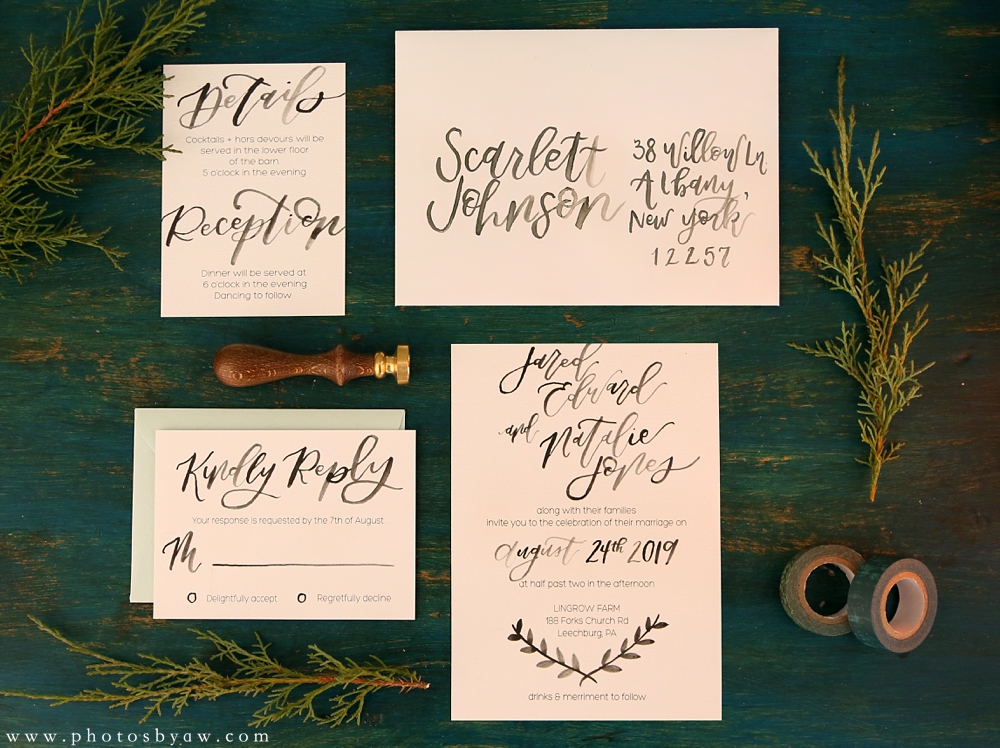 Details
Cocktails + hors devours will be
served in the lower floor
of the barn.
5 o'clock in the evening
Reception
Dinner will be served at
6 o'clock in the evening
Dancing to follow
Scarlett
Johnson
38 Willow Ln.
Albany,
New York
12257
Kindly Reply
Your response is requested by the 7th of August
M
Delightfully accept
Regretfully decline
Jared
Edward
and
Natalie
Jones
along with their families
invite you to the celebration of their marriage on
august 24th 2019
at half past two in the afternoon
LINGROW FARM
188 Forks Church Rd
Leechburg, PA
drinks & merriment to follow
www.photosbyaw.com